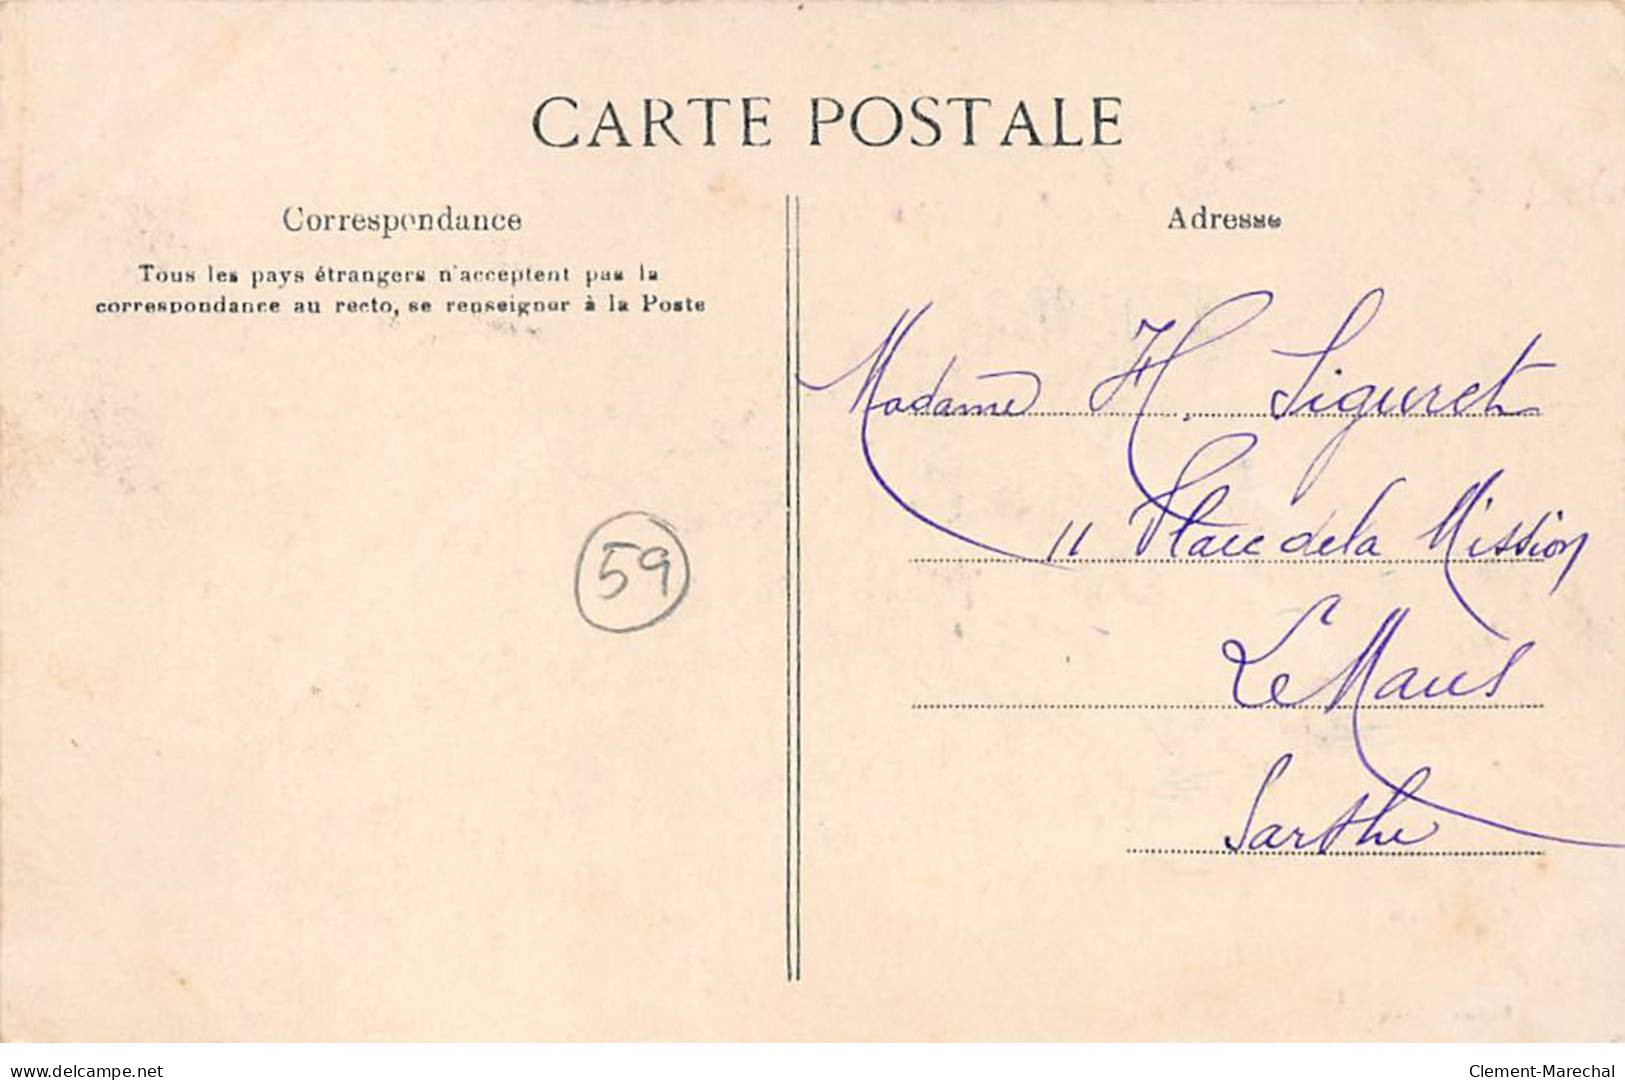 CARTE POSTALE
Correspondance
Tous les pays étrangers n'acceptent pas la
correspondance au recto, se renseigner à la Poste
59
Adresse
Madame H. Siguret
11 Place de la Mission
Le Mans
Sarthe
delcampe.net
Clement-Marechal